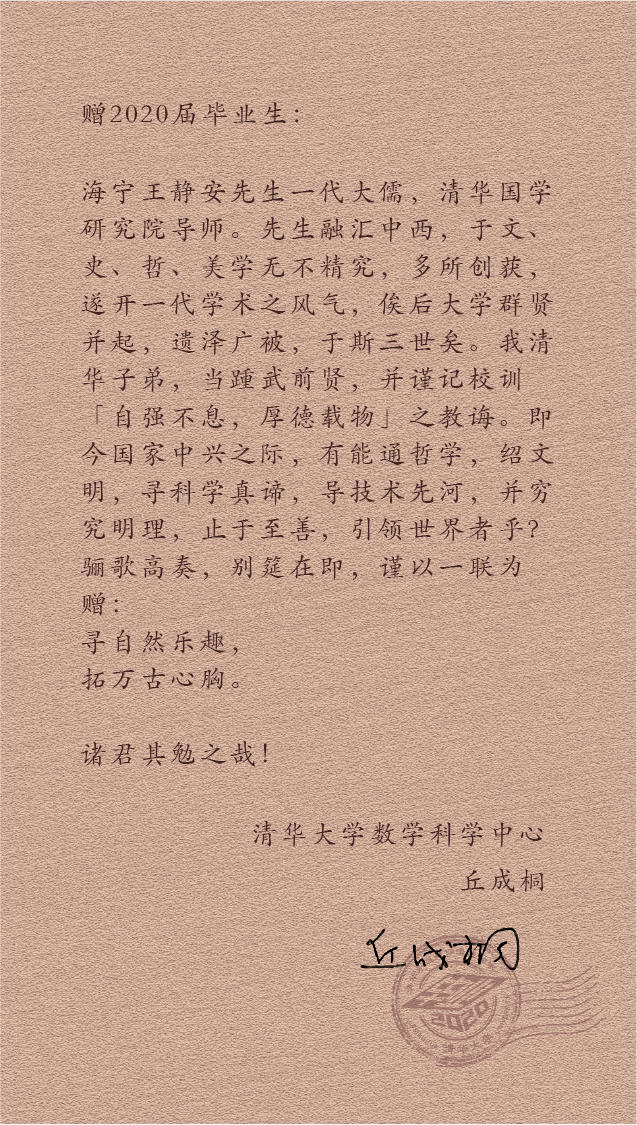 赠2020届毕业生：
海宁王静安先生一代大儒，清华国学
研究院导师。先生融汇中西，于文、
史、哲、美学无不精究，多所创获，
遂开一代学术之风气，俟后大学群贤
并起，遗泽广被，于斯三世矣。我清
华子弟，当踵武前贤，并谨记校训
「自强不息，厚德载物」之教诲。即
今国家中兴之际，有能通哲学，绍文
明，寻科学真谛，导技术先河，并穷
究明理，止于至善，引领世界者乎？
骊歌高奏，别筵在即，谨以一联为
赠：
寻自然乐趣，
拓万古心胸。
诸君其勉之哉！
清华大学数学科学中心
丘成桐
丘成桐
2020